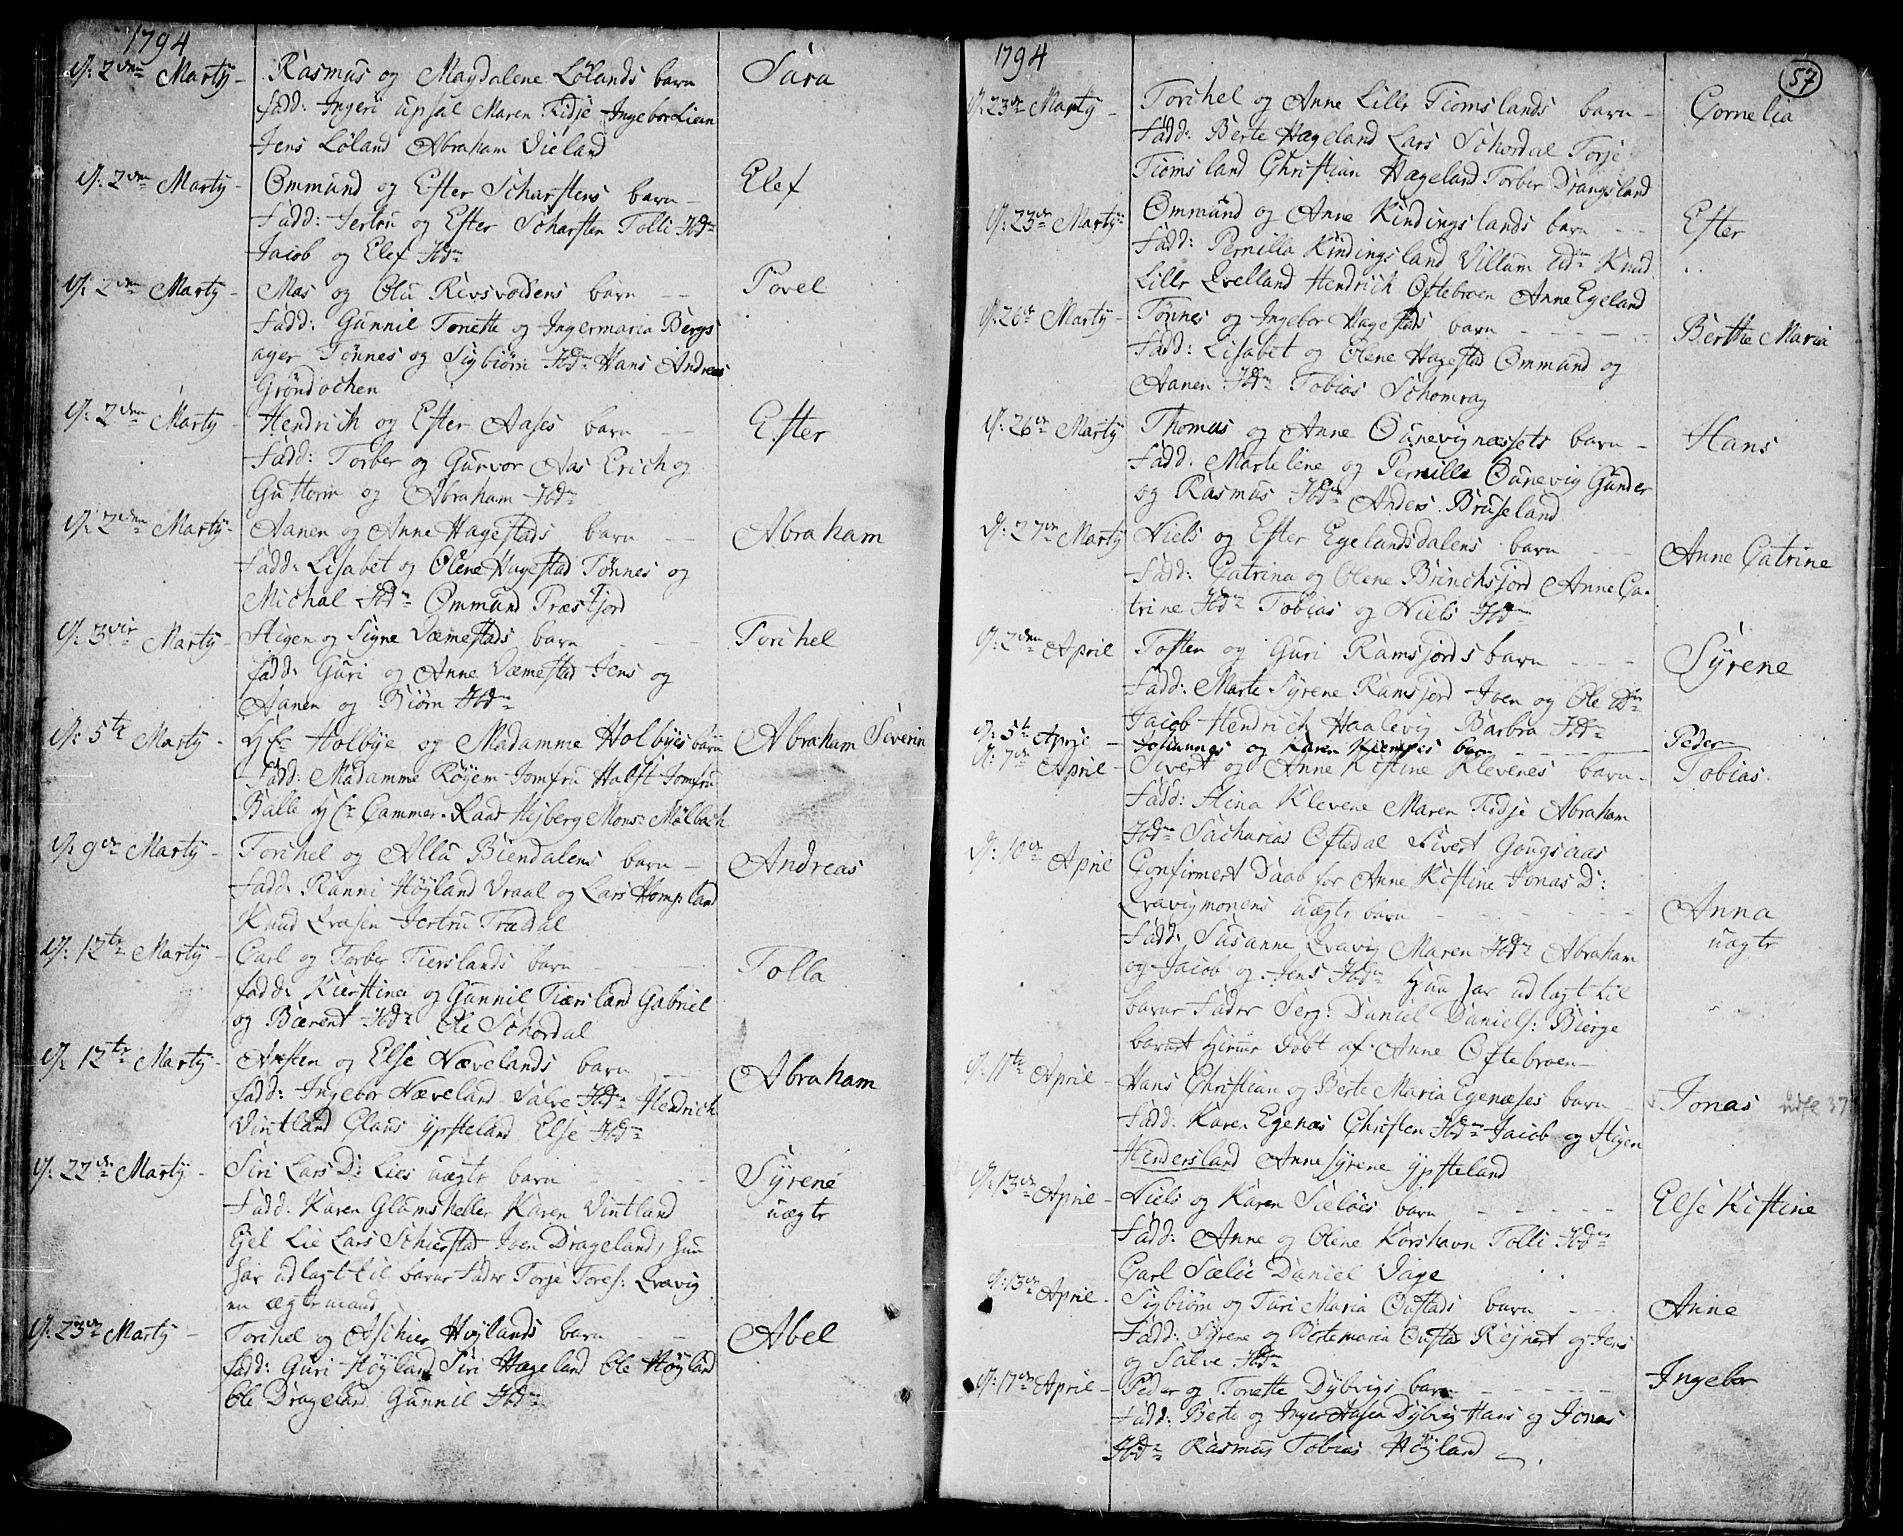 1794
d: 2den Marty - Rasmus og Magdalene Lølands barn Sara
fadd: Ingeri Upsal Maren Fidje Ingebor Lien
Jens Løland Abraham Vieland
d: 2den Marty - Ommund og Ester Scharstens barn - Elef
Fadd: Jertru og Ester Scharsten Tolli Ibdm
Jacob og Elef Ibdm
d: 2den Marty - Mas og Olu Risvoldens barn - - Povel
Fadd: Gunnil Tonette og Ingermaria Bergs
ager Tønnes og Sigbiørn Ibdm Hans Andreas
Grøndochen
d: 2den Marty - Hendrich og Ester Aases barn - - Ester
Fadd: Torber og Gurvor Aas Erich og
Guttorm og Abraham Ibdm
d: 2den Marty - Aanen og Anne Hagestads barn - - Abraham
Fadd: Lisabet og Olene Hagestad Tønnes og
Michal Ibdm Ommund Præstfjord
d: 3die Marty - Stigen og Signe Væmestads barn - - Torchel
fadd: Guri og Anne Væmestad Jens og
Aanen og Biørn Ibdm
d: 5te Marty - Hr Holbye og Madamme Holbyes barn Abraham Severin
Fadd: Madamme Røyem Jomfru Hulst Jomfru
Balle Hr Cammer-Raad Hejberg Mons: Mølbach
d: 9de Marty - Torchel og Allu Biendalens barn - Andreas
Fadd: Ranni Høyland Vraal og Lars Hompland
Knud Qvasen Jertru Trædal
d: 12te Marty - Carl og Torber Tierslands barn - - Tolla
fadd: Kierstina og Gunnil Tiærsland Gabriel
og Bærent Ibdm Ole Schordal
d: 12te Marty - Aasten og Else Nævelands barn - - Abraham
fadd: Ingebor Næveland Salve Ibdm Hendrich
Vintland Claus Ypsteland Else Ibdm
d: 22de Marty - Siri Lars D: Lies uægte barn - - - - Syrene
uægte
Fadd: Karen Glomsheller Karen Vintland
Ejel Lie Lars Schierstad Iven Drageland, hun
har udlagt til barne Fader Torje Tores: Qvavig
en ægte mand
d: 23de Marty - Torchel og Aschier Høylands barn - - Abel
fadd: Guri Høyland Siri Hægeland Ole Høyland
Ole Drageland Gunnil Ibdm
1794
57
d: 23de Marty - Torchel og Anne Lille Tiomslands barn - Cornelia
Fadd: Berte Hægeland Lars Schordal Torje
Tiomsland Christian Hægeland Torber Drangsland
d: 23de Marty - Ommund og Anne Kindingslands barn - - Ester
Fadd: Pernilla Kindingsland Villum Ibdm Knud
Lille Qvelland Hendrich Oftebroen Anne Egeland
d: 26de Marty - Tønnes og Ingebor Hagestads barn - - - - Berthe Maria
Fadd: Lisabet og Olene Hagestad Ommund og
Aanen Ibdm Tobias Schomrag
d: 26de Marty Thomas og Anne Ounevignæssets barn - Hans
Fadd: Martelene og Pernille Ounevig Gunder
og Rasmus Ibdm Anders Bruseland
d: 27de Marty Niels og Ester Egelandsdalens barn - - - Anne Catrine
Fadd: Catrina og Olene Brinchsfjord Anne Ca-
trine Ibdm Tobias og Niels Ibdm
d: 2den April Tosten og Guri Ramsfjords barn - - - Syrene
Fadd: Marte Syrene Ramsfjord Iven og Ole Ibdm
Jacob Hendrich Haalevig Barbra Ibdm
d: 5te April - Johannes og Karen Kiempes barn - - - Peder
d: 7de April - Sivert og Anne Kistine Klevenes barn - Tobias
Fadd: Stina Klevene Maren Fidje Abraham
Ibdm Sacharias Oftedal Sivert
d: 10de April Confirmert Daab for Anne Kistine Jonas D:
Qvavigmonens uægte barn - - - - Anna
uægte
Fadd: Susanne Qvavig Maren Ibdm Abraham
og Jacob og Jens Ibdm Hun har udlagt til
barne Fader Serg: Daniel Daniels: Bierge
barnet hiemme døbt af Anne Oftebroen -
d: 11te April - Hans Christian og Berte Maria Egenæses barn - Jonas udfl 37
Fadd: Karen Egenæs Christen Ibdm Jacob og Stigen
Hindersland Anne Syrene Ypsteland
d: 13de April - Niels og Karen Sæløes barn - - - - - Else Kistine
Fadd: Anne og Olene Korshavn Tolli Ibdm
Carl Sæløe Daniel Vage
d: 13de April - Sigbiørn og Turi Maria Oustads barn - - - Anne
Fadd: Syrene og Bertemaria Oustad Rejnert og Jens
og Salve Ibdm
d: 17de April - Peder og Tonette Dybvigs barn - - - - Ingebor
Fadd: Berte og Inger Aasen Dybvig Hans og Jonas
Ibdm Rasmus Tobias Høyland